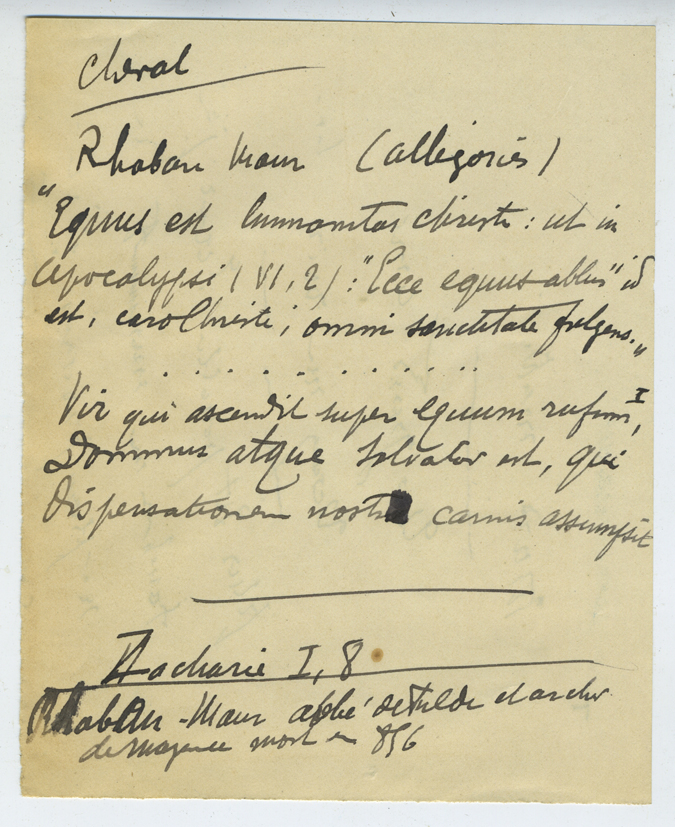 Cheval
Rhaban Maur (allégories)
"Equus est humanitas Christi: ut in
Apocalypsi (VI, 2): "Ecce equus albus" id
est, caro Christi, omni sanctitate fulgens."
. . . . . . . . . . . .
Vir qui ascendit super equum rufum I,
Dominus atque Salvator est, qui
dispensationem nostra carnis assumpsit
Zacharie I, 8
Rhaban-Maur abbé de Fulde et archev.
de Mayence mort en 856